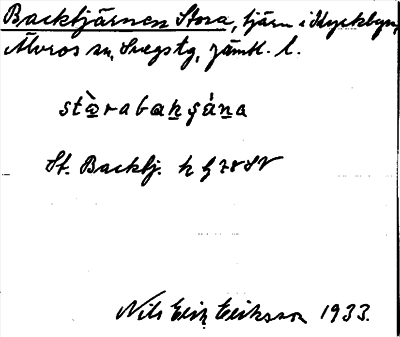 Backtjärnen Stora, tjärn i Kyrkbyn,
Älvros sn, Svegs tg, Jämtl. l.
stàrabakʂána
St. Backtj. h G 28 SV
Nils Erik Eriksson 1933.